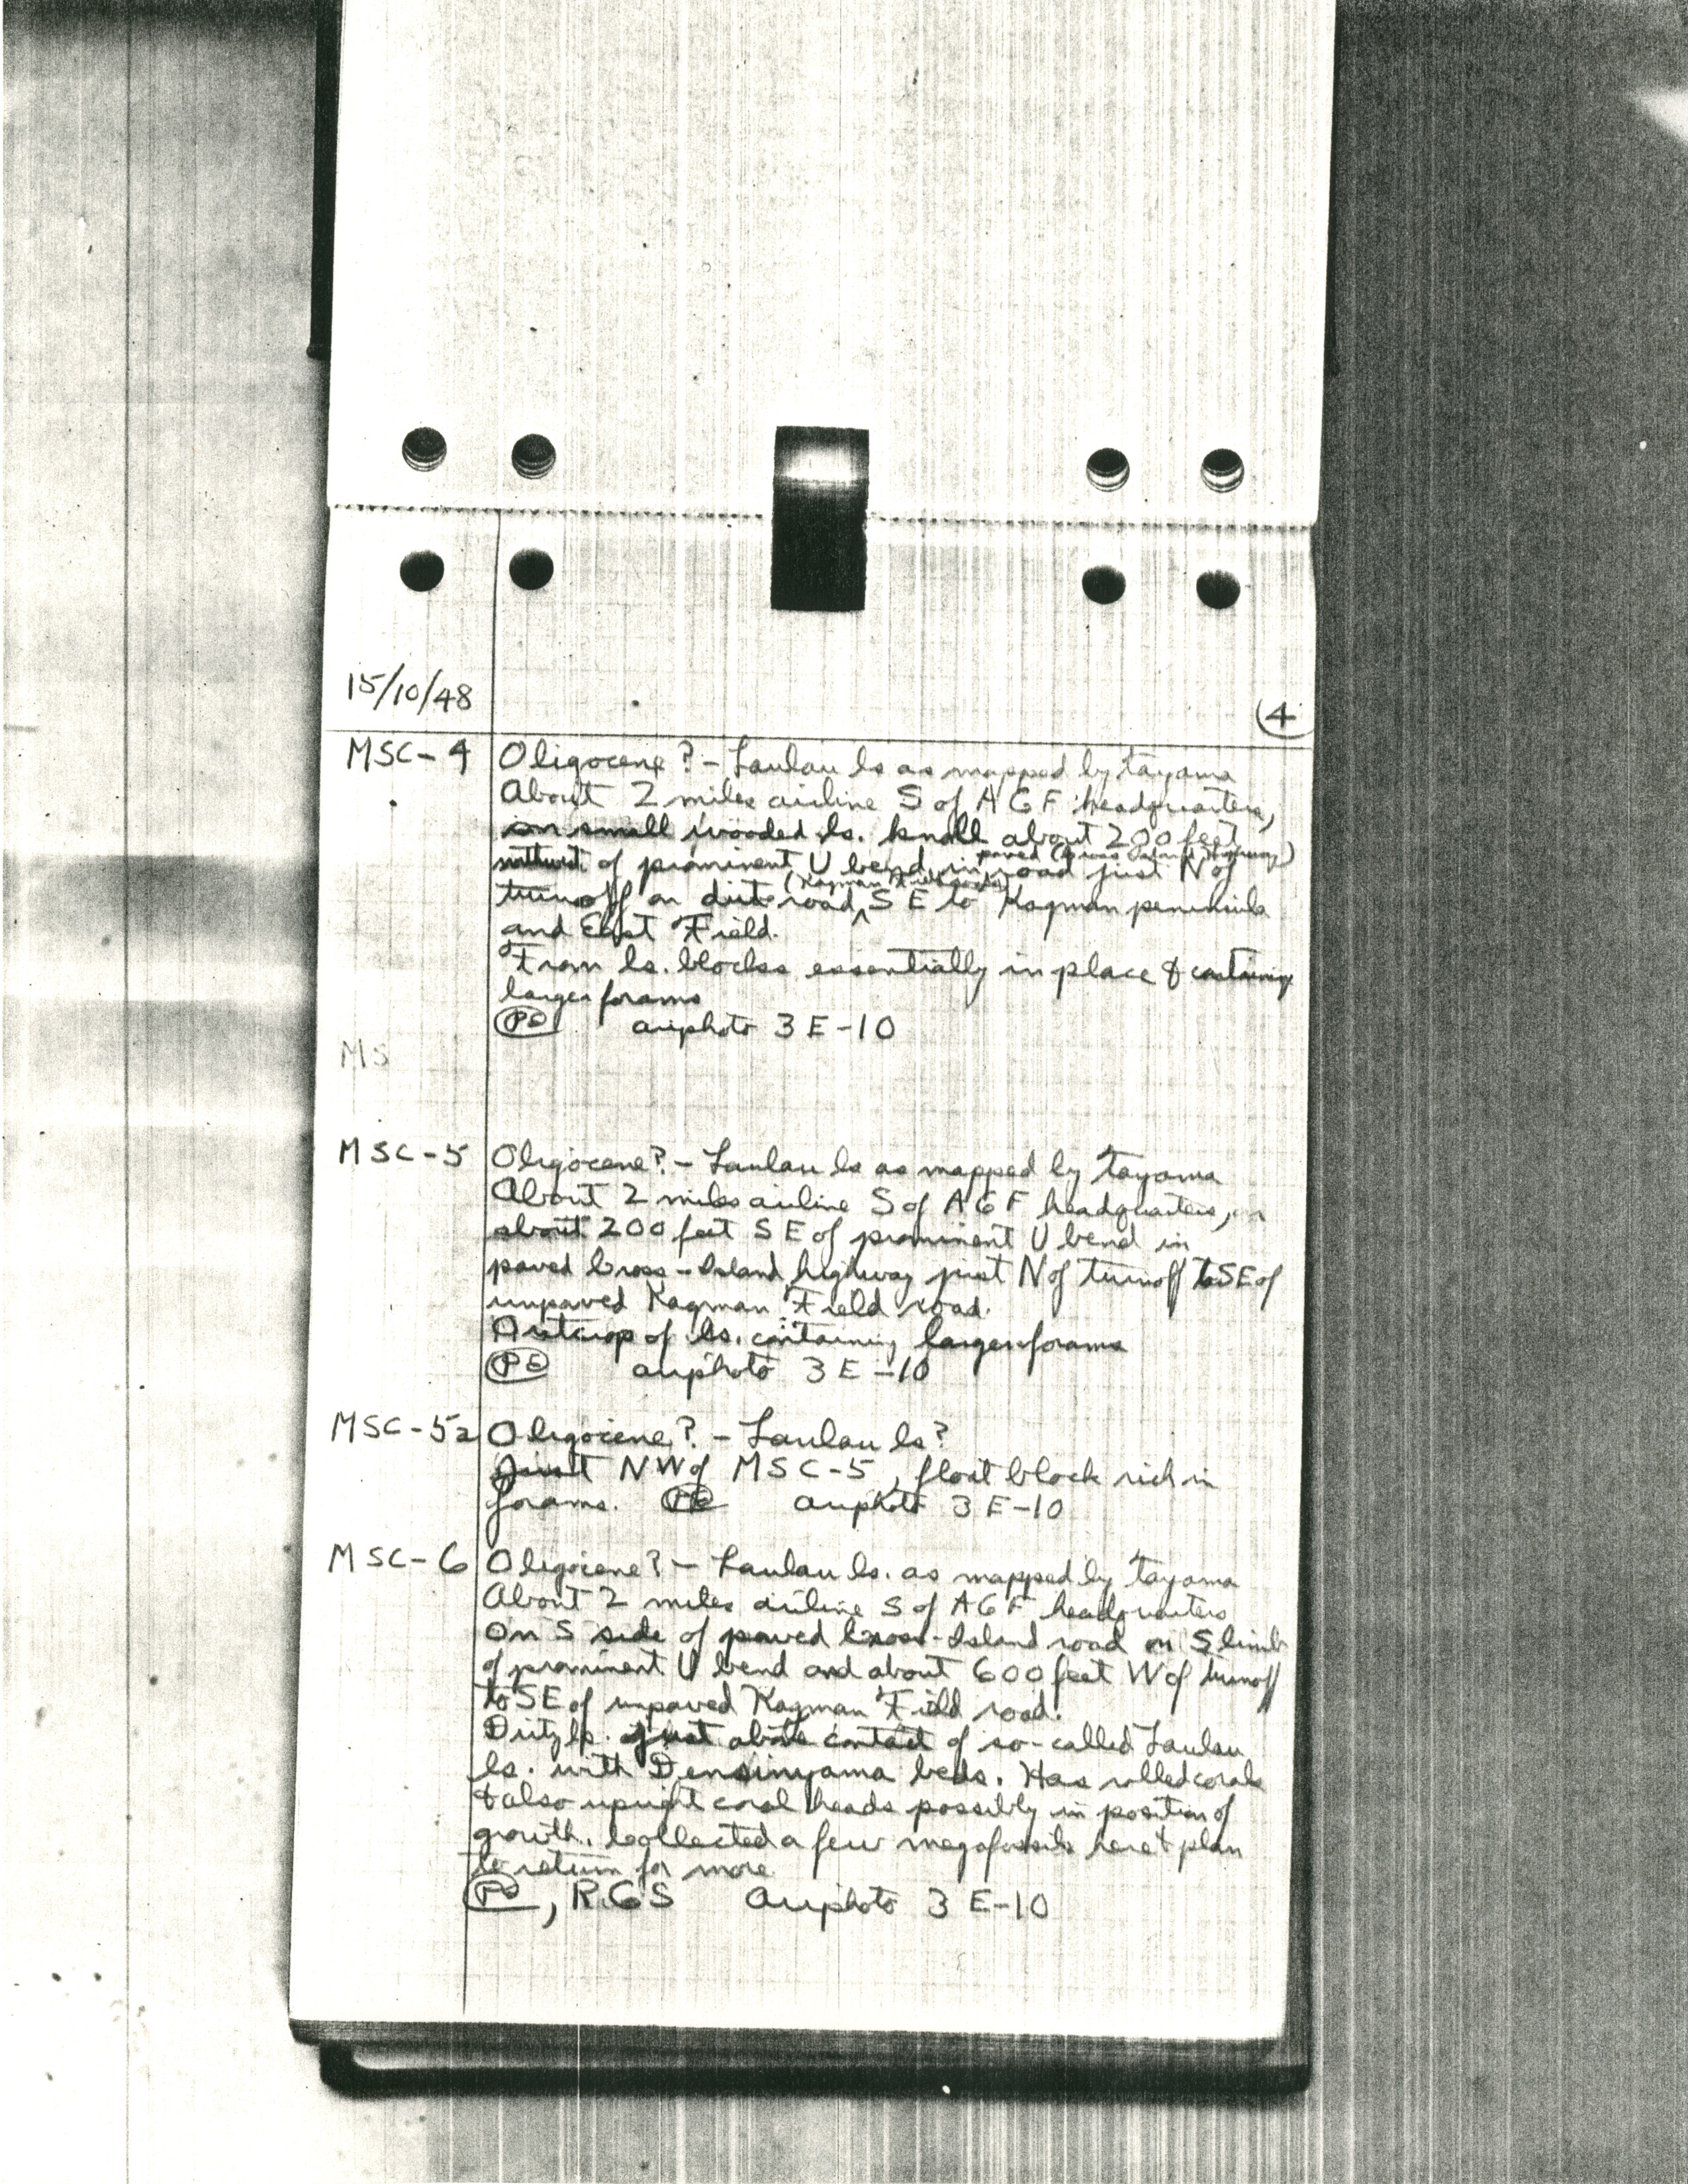 15/10/48
4
MSC-4 Oligocene? - Laulau ls as mapped by Tayama
About 2 miles airline S of AGF headquarters,
on small wooded ls. knoll about 200 feet
of prominent U bend in paved (Cross Island Highway) road just N of
turnoff on dirt road (Kagman Field road) SE to Kagman peninsula
and East Field.
From ls. blocks essentially in place & containing
larger forams
airphoto 3E-10
MS
MSC-5 Oligocene? - Laulau ls as mapped by Tayama
About 2 miles airline S of AGF headquarters,
about 200 feet SE of prominent U bend in
paved Cross-Island highway just N of turnoff to SE of
unpaved Kagman Field road.
Outcrop of ls. containing larger forams
PE airphoto 3E-10
MSC-5a Oligocene? - Laulau ls?
Just NW of MSC-5, float block rich in
forams. PE airphoto 3E-10
MSC-6 Oligocene? - Laulau ls. as mapped by Tayama
About 2 miles airline S of AGF headquarters
On S side of paved Cross-Island road on S limb
of prominent U bend and about 600 feet W of turnoff
to SE of unpaved Kagman Field road.
Dirty ls. just above contact of so-called Laulau
ls. with Densinyama beds. Has rolled corals
& also upright coral heads possibly in position of
growth. Collected a few megafossils here & plan
to return for more
, RGS airphoto 3E-10